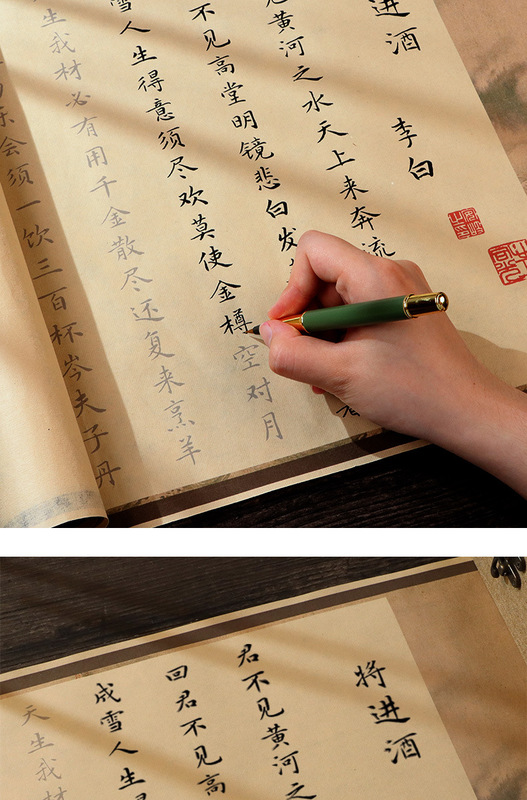 进酒
李白
见黄河之水天上来奔流
不见高堂明镜悲白发
雪人生得意须尽欢莫使金樽空对月
生我材必有用千金散尽还复来烹羊
乐会须一饮三百杯岑夫子丹
将进酒
君不见黄河之
回君不见高
成雪人生
天生我材